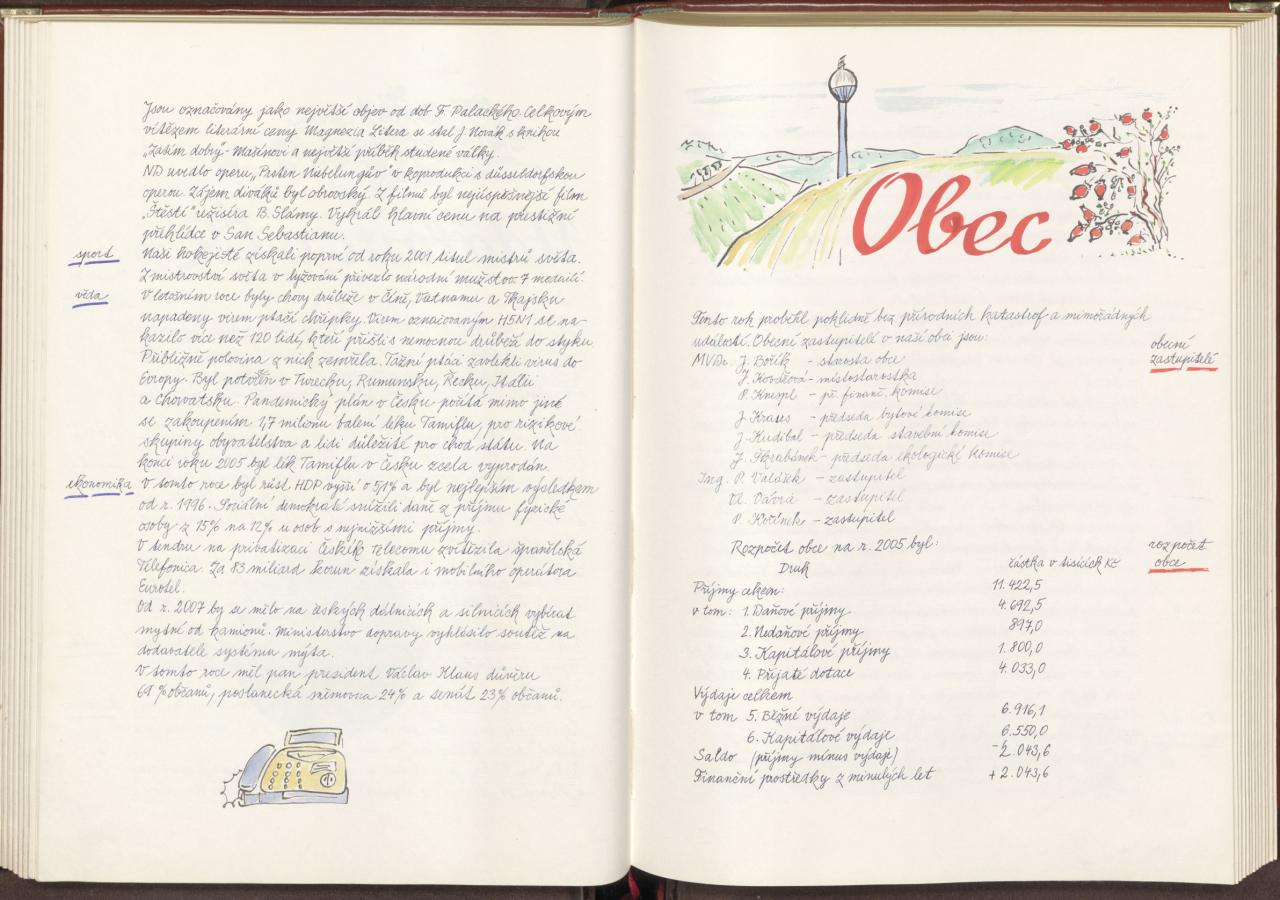 Jsou označovány jako největší objev od dob F. Palackého. Celkovým
vítězem literární ceny Magnezia Litera se stal J. Novák s knihou
„Zatím dobrý“ - Mašínovi a největší příběh studené války.
ND uvedlo operu „Prsten Niebelungův“ v koprodukci s düsseldorfskou
operou. Zájem diváků byl obrovský. Z filmů byl nejúspěšnější film
„Štěstí“ režiséra B. Slámy. Vyhrál hlavní cenu na prestižní
přehlídce v San Sebastianu.
sport
Naši hokejisté získali poprvé od roku 2001 titul mistrů světa.
Z mistrovství světa v lyžování přivezlo národní mužstvo 7 medailí.
věda
V letošním roce byly chovy drůbeže v Číně, Vietnamu a Thajsku
napadeny virem ptačí chřipky. Virem označovaným H5N1 se na-
kazilo více než 120 lidí, kteří přišli s nemocnou drůbeží do styku.
Přibližně polovina z nich zemřela. Tažní ptáci zavlekli virus do
Evropy. Byl potvrzen v Turecku, Rumunsku, Řecku, Itálii
a Chorvatsku. Pandemický plán v Česku počítá mimo jiné
se zakoupením 1,7 milionu balení léku Tamiflu, pro rizikové
skupiny obyvatelstva a lidi důležité pro chod státu. Na
konci roku 2005 byl lék Tamiflu v Česku zcela vyprodán.
ekonomika
V tomto roce byl růst HDP vyšší o 5,1% a byl nejlepším výsledkem
od r. 1996. Sociální demokraté snížili daně z příjmu fyzické
osoby z 15% na 12% u osob s nejnižšími příjmy.
V tendru na privatizaci Českého Telecomu zvítězila španělská
Telefonica. Za 83 miliard korun získala i mobilního operátora
Eurotel.
Od r. 2007 by se mělo na českých dálnicích a silnicích vybírat
mýtné od kamionů. Ministerstvo dopravy vyhlásilo soutěž na
dodavatele systému mýta.
V tomto roce měl pan president Václav Klaus důvěru
69 % občanů, poslanecká sněmovna 24% a senát 23% občanů.
Obec
Tento rok proběhl poklidně bez přírodních katastrof a mimořádných
událostí. Obecní zastupitelé v naší obci jsou:
obecní
zastupitelé
MVDr. J. Bořík - starosta obce
J. Kovářová - místostarostka
P. Knespl - př. finanč. komise
J. Kraus - předseda bytové komise
J. Kudibal - předseda stavební komise
J. Škrabánek - předseda ekologické komise
Ing. P. Valášek - zastupitel
Vl. Vávra - zastupitel
P. Kořínek - zastupitel
Rozpočet obce na r. 2005 byl:
rozpočet
obce
Druh částka v tisících Kč
Příjmy celkem: 11.422,5
v tom: 1. Daňové příjmy 4.692,5
2. Nedaňové příjmy 897,0
3. Kapitálové příjmy 1.800,0
4. Přijaté dotace 4.033,0
Výdaje celkem
v tom 5. Běžné výdaje 6.916,1
6. Kapitálové výdaje 6.550,0
Saldo (příjmy mínus výdaje) -2.043,6
Finanční prostředky z minulých let +2.043,6